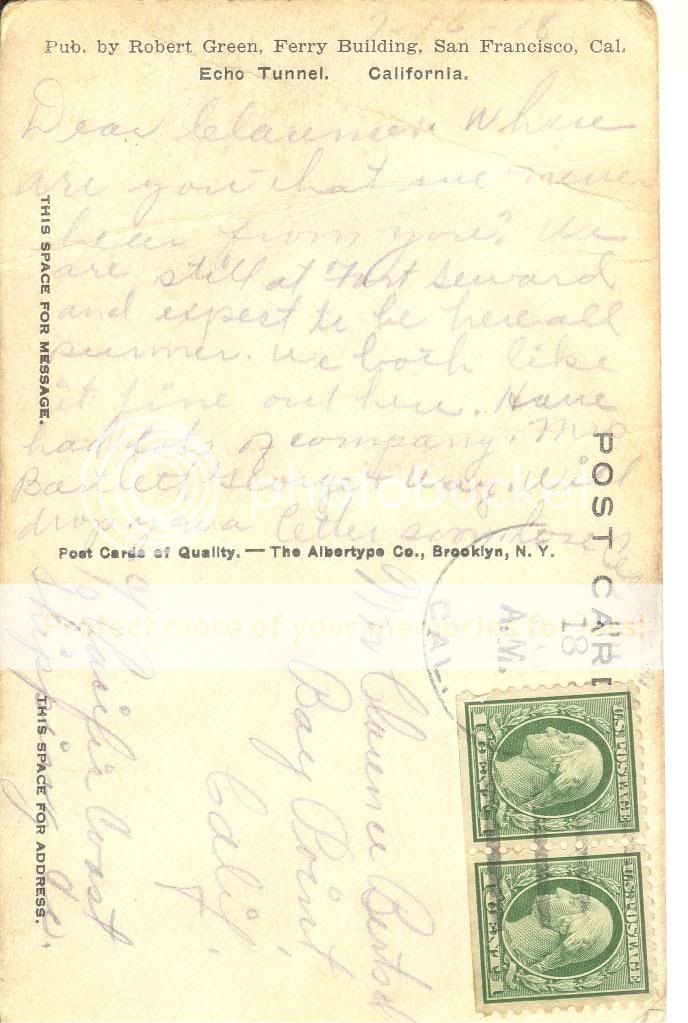 Pub. by Robert Green, Ferry Building, San Francisco, Cal.
Echo Tunnel. California.
Dear Clarence:: Where
are you that we never
hear from you? We
are still at Fort Seward
and expect to be here all
summer. We both like
it fine out here. Have
had lots of company. Mrs
Bartlett George &
drop you a letter
THIS SPACE FOR MESSAGE.
Post Cards of Quality. — The Albertype Co., Brooklyn, N. Y.
POST CARD
CAL.
A.M.
18
U.S. POSTAGE
1 CENT 1
U.S. POSTAGE
1 CENT 1
Mr Clarence
Bay Point
Calif.
Pacific Coast
Shipping Co.
THIS SPACE FOR ADDRESS.
photobucket
Protect more of your memories for less!